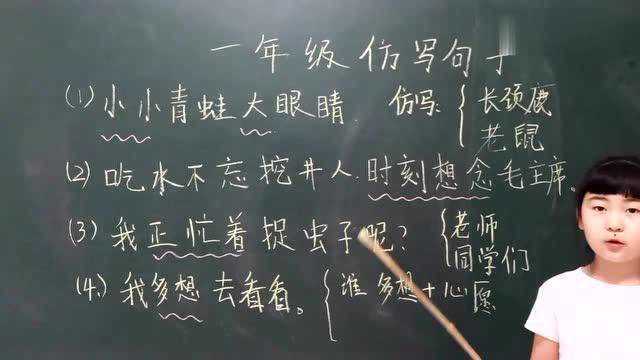 一年级仿写句子
(1)小小青蛙大眼睛. 仿写:{长颈鹿
老鼠
(2)吃水不忘挖井人.时刻想念毛主席。
(3)我正忙着捉虫子呢?{老师
同学们
(4.)我多想去看看。{谁多想+心愿